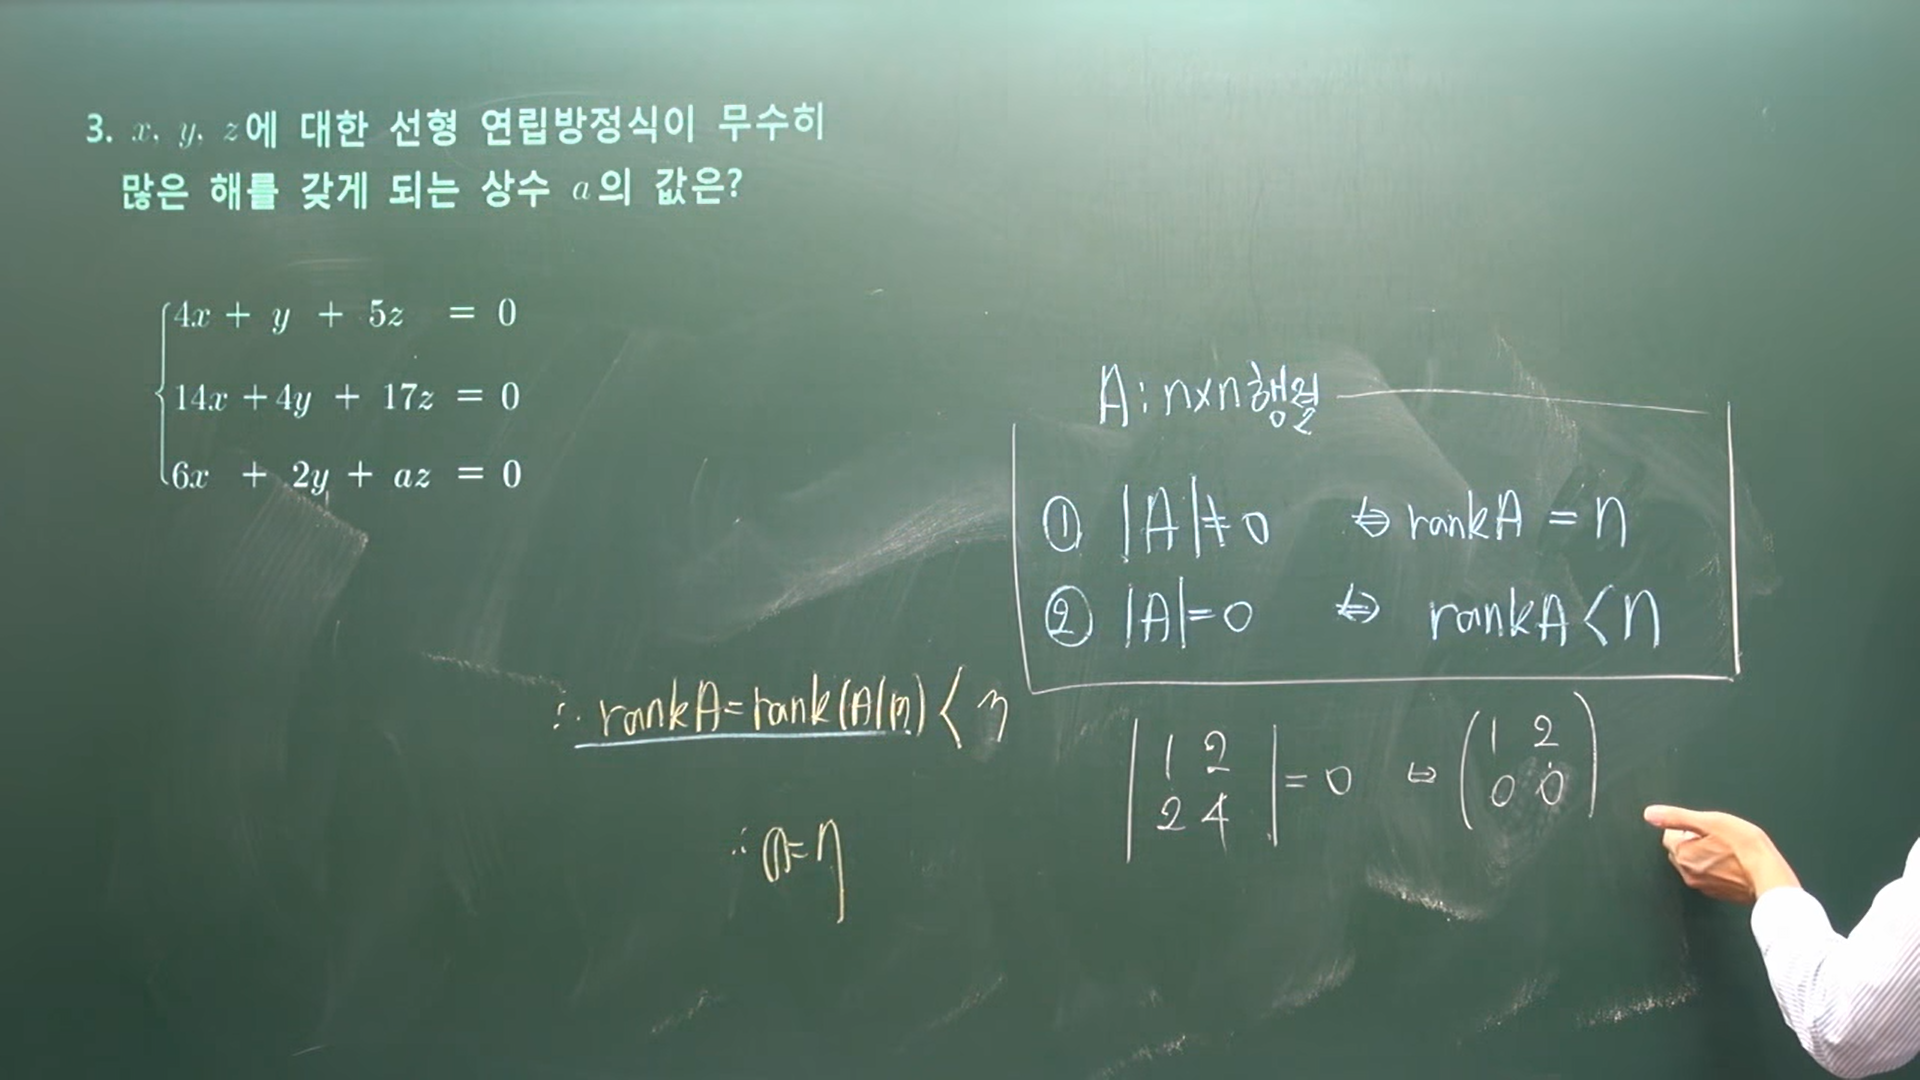 3. x, y, z에 대한 선형 연립방정식이 무수히
많은 해를 갖게 되는 상수 a의 값은?
4x + y + 5z = 0
14x + 4y + 17z = 0
6x + 2y + az = 0
A : n×n행렬
① |A|≠0 ⇔ rankA = n
② |A|=0 ⇔ rankA < n
∴ rankA = rank(A|B) < 3
| 1 2 | = 0 ⇔ ( 1 2 )
| 2 4 | ( 0 0 )
∴ a = 7